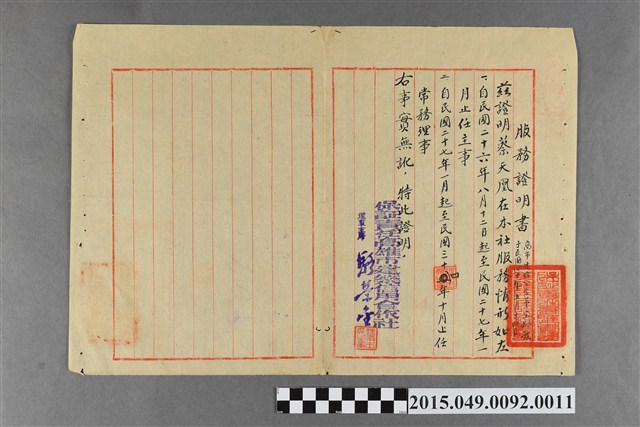 服務證明書
茲證明蔡天凰在本社服務情形如左
一、自民國二十六年八月十二日起至民國二十七年一
月止任主事
二、自民國二十七年一月起至民國三十四年十月止任
常務理事
右事實無訛，特此證明
保證責任高雄市建築信用合作社
理事主席
2015.049.0092.0011